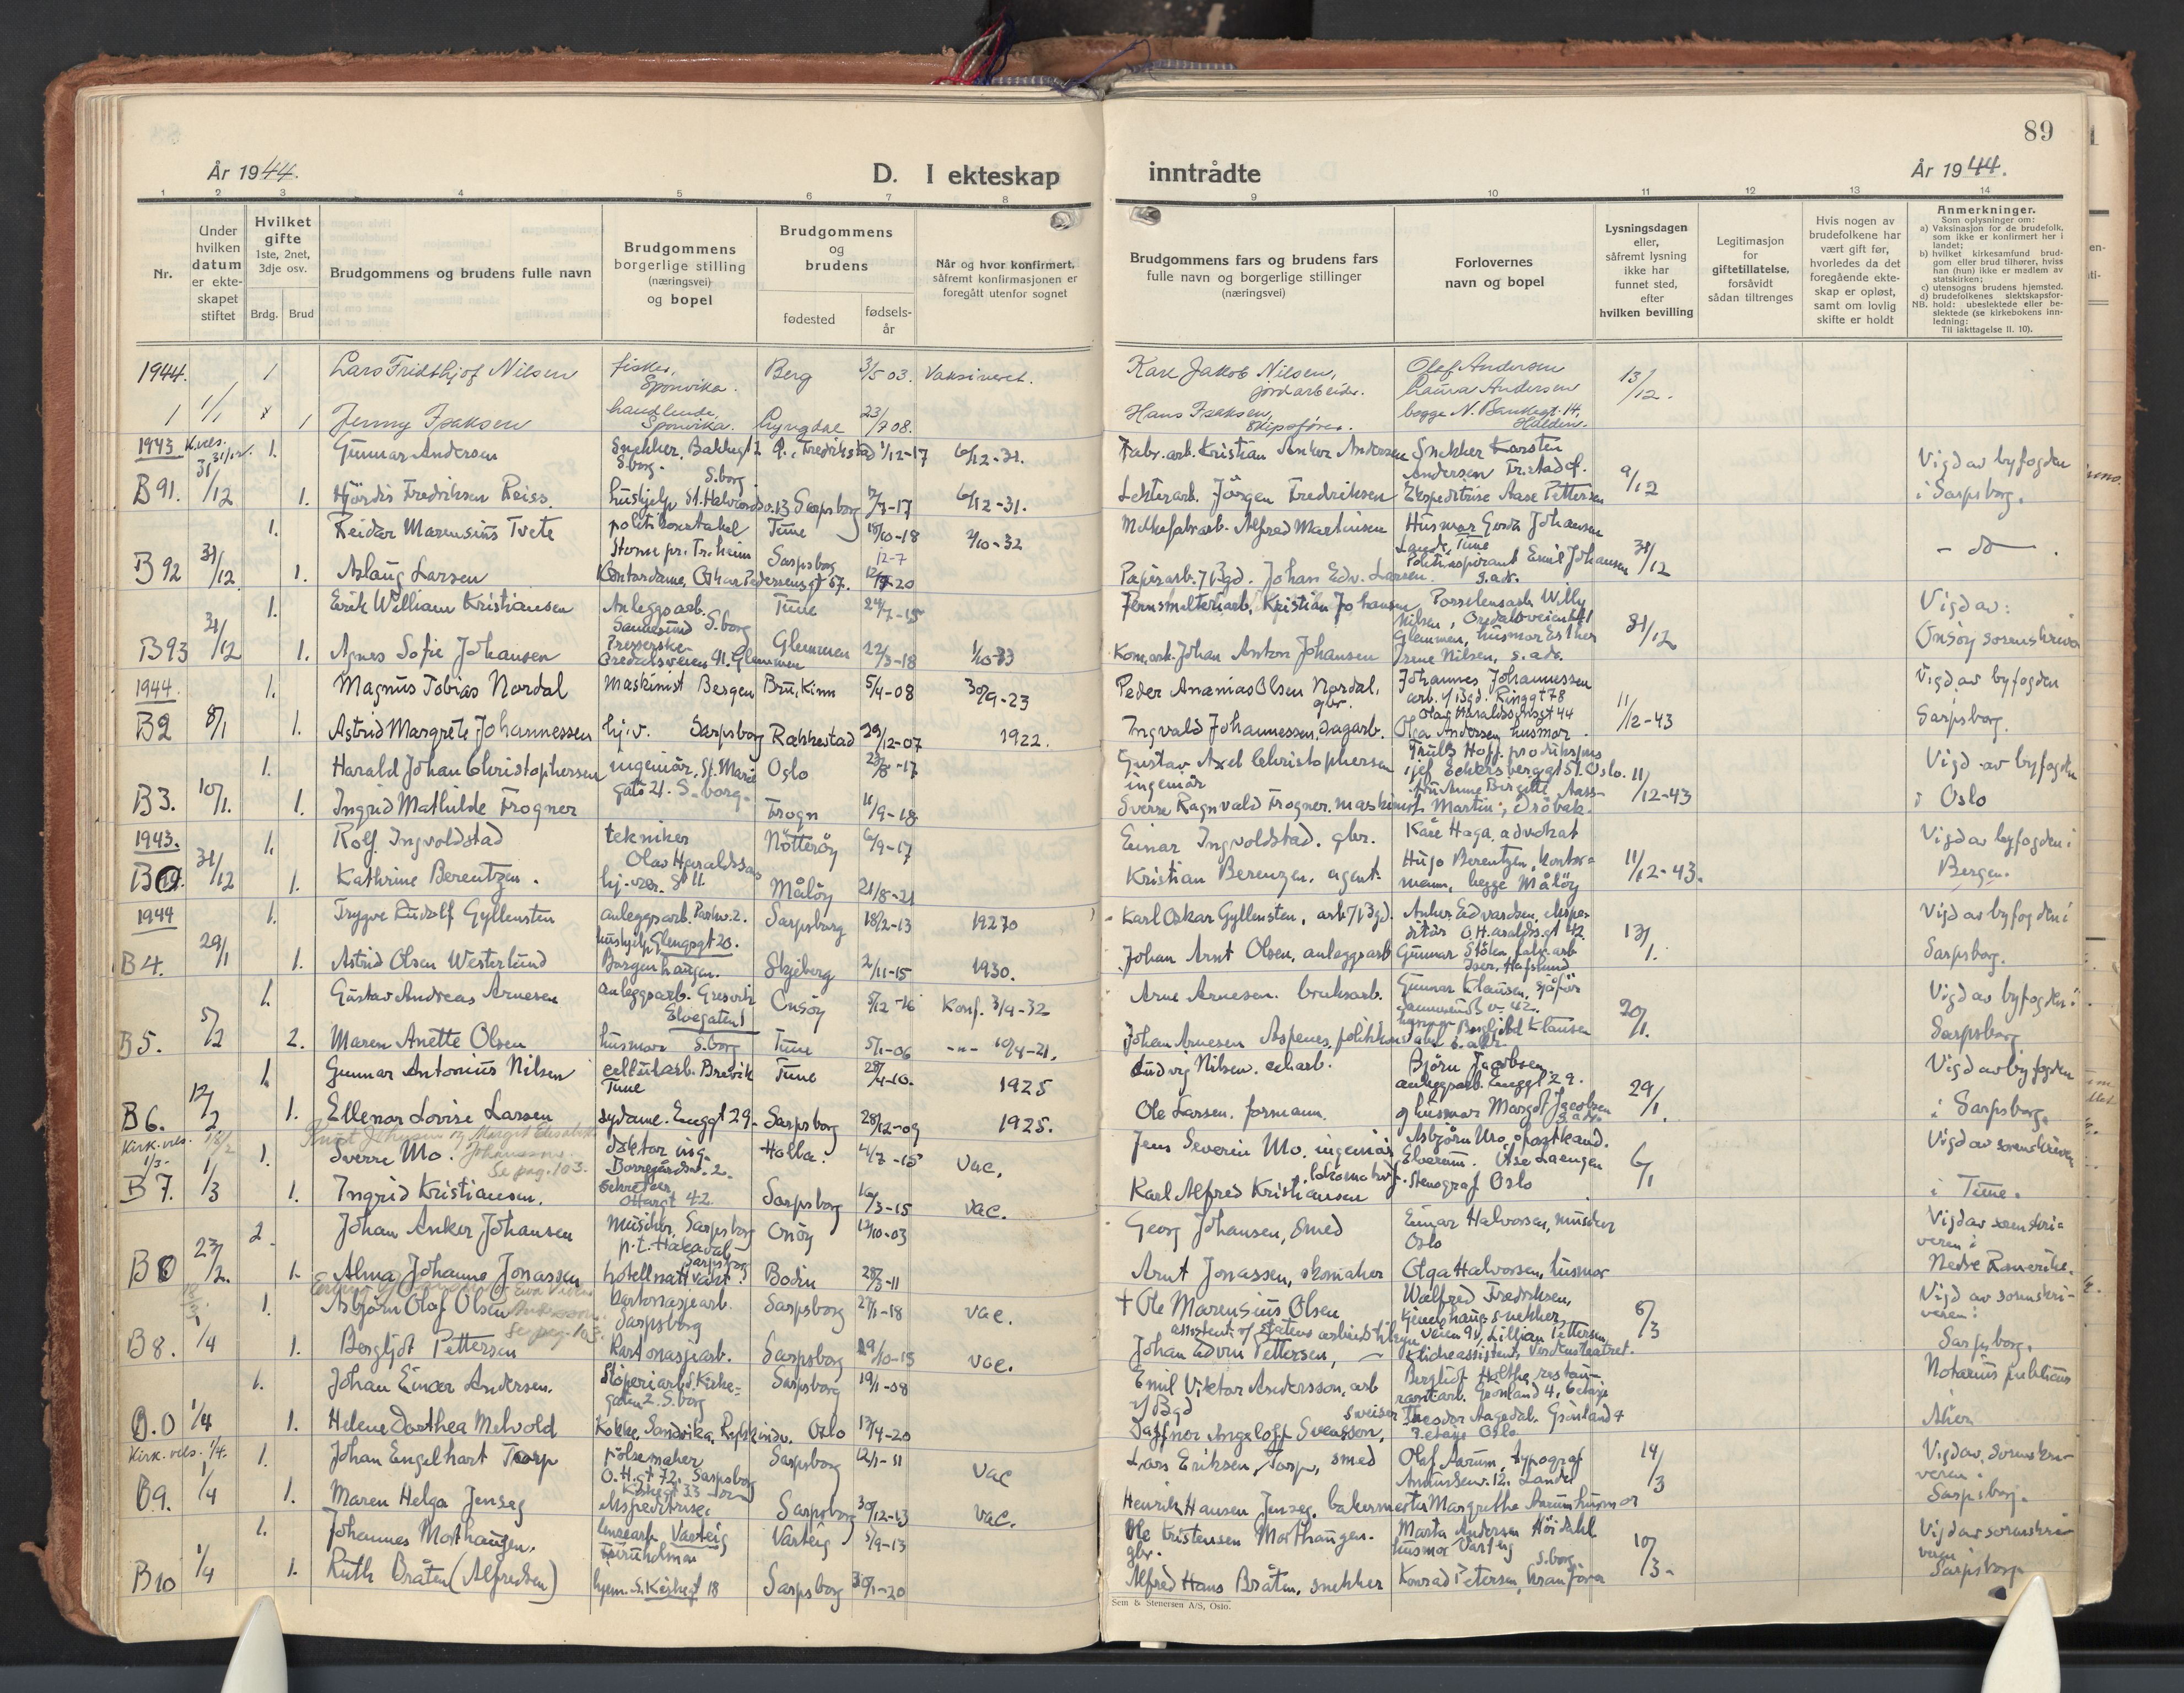 89
År 1944.
D. I ekteskap
inntrådte
År 1944.
1 2 3 4 5 6 7 8 9 10 11 12 13 14
Nr.
Under hvilken datum er ekteskapet stiftet
Hvilket gifte 1ste, 2net, 3dje osv.
Brdg. Brud
Brudgommens og brudens fulle navn
Brudgommens borgerlige stilling (næringsvei) og bopel
Brudgommens og brudens
fødested
fødselsår
Når og hvor konfirmert, såfremt konfirmasjonen er foregått utenfor sognet
Brudgommens fars og brudens fars fulle navn og borgerlige stillinger (næringsvei)
Forlovernes navn og bopel
Lysningsdagen eller, såfremt lysning ikke har funnet sted, efter hvilken bevilling
Legitimasjon for giftetillatelse, forsåvidt sådan tiltrenges
Hvis nogen av brudefolkene har vært gift før, hvorledes da det foregående ekteskap er opløst, samt om lovlig skifte er holdt
Anmerkninger.
Som oplysninger om:
a) Vaksinasjon for de brudefolk, som ikke er konfirmert her i landet;
b) hvilket kirkesamfund brudgom eller brud tilhører, hviss han (hun) ikke er medlem av statskirken;
c) utensogns brudens hjemsted.
d) brudefolkenes slektskapsforhold: ubeslektede eller beslektede (se kirkebokens innledning:
NB.
Til iakttagelse II. 10).
1944. 1 Lars Fridthjof Nilsen fisker, Sponvika. Berg 3/5 03. Vaksineret. Karl Jakob Nilsen, jordarbeider. Olaf Andersen Laura Andersen 13/12.
1 1/1 1 Jenny Isaksen Sponvika. Lyngdal 23/7 08. Hans Isaksen, skipsfører. begge N. Bankegt. 14, Halden.
1943 K.vels. 31/12. 1. Gunnar Andersen Snekker. Bakkegt 2 S.borg. Fredrikstad 1/12-17 6/12-31. Fabr.arb. Kristian Anker Andersen Snekker Karsten Andersen Fr.stad Vigd av byfogden
B 91. 31/12 1. Hjördis Fredriksen Reiss hushjelp St. Halvordsv. 13 S.borg Sarpsborg 6/12-31. Lekterarb. Jörgen Fredriksen Ekspeditrise Aase Pettersen 9/12 i Sarpsborg.
1. Reidar Marensius Tvete politikonstabel Tune 18/10-18 2/10-32 Alfred Martinsen Husmor Gerda Johansen Lande, Tune
B 92 31/12 1. Aslaug Larsen Kontordame, Oskar Pedersensgt 67. Sarpsborg 12/7-20 Papirarb. 7/Bgd. Johan Edv. Larsen Politiaspirant Emil Johansen s.ads. 31/12 - do - .
1. Erik William Kristiansen Anleggsarb. Sannesund S.borg Tune 24/7-15 Kristian Johansen Porselensarb. Willy Nilsen, Oredalsveien 41 Vigd av:
B 93 31/12 1. Agnes Sofie Johansen Presserske Oredalsveien 41. Glemmen Glemmen 22/3-18 1/10-33 Kom.arb. Johan Anton Johansen Glemmen, husmor Esther Irene Nilsen, s.ads. 31/12 Onsöy sorenskriver
1944. 1. Magnus Tobias Nordal Maskinist Bergen Bru, Kinn 5/4-08 30/9-23 Peder Ananias Olsen Nordal, gbr. Johannes Johannessen arb. 7/Bgd. Ringgt 78 11/12-43 Vigd av byfogden
B 2 8/1 1. Astrid Margrete Johannessen hj.v. Sarpsborg Rakkestad 29/12-07 1922. Ingvald Johannessen, Dagarb. Olav Haraldssonsgt 44 Olga Andersen husmor Sarpsborg.
1. Harald Johan Christophersen ingeniör, St. Marie gate 21. S.borg. Oslo 23/8-17 Gustav Axel Christophersen ingeniör Truls Hopp, sjef Eckersberggt 51. Oslo. 11/12-43 Vigd av byfogden
B 3. 10/1. 1. Ingrid Mathilde Frogner Frogn 11/9-18 Sverre Ragnvald Frogner. maskinist Fru Anne Birgitte Aass-Martin; Dröbak. i Oslo
1943. 1. Rolf Ingvoldstad tekniker Nötteröy 6/9-17 Einar Ingvoldstad. gbr. Kåre Haga, advokat Vigd av byfogden i
31/12 1. Kathrine Berentzen. Olav Haraldssons gt 11 Målöy 21/8-21 Kristian Berenzen. agent. Hugo Berentzen, kontormann, begge Målöy 11/12-43. Bergen.
1944 1. Trygve Rudolf Gyllensten anleggsarb. Parkv. 2. Sarpsborg 18/2-13 1927 Karl Oskar Gyllensten, arb 7/Bgd. Anker Edvardsen, ekspeditör O. Haraldss.gt 42. 13/1. Vigd av byfogden i
B 4. 29/1 1. Astrid Olsen Westerlund hushjelp Glengsgt 20. Borgenhaugen. Skjeberg 2/11-15 1930. Johan Arnt Olsen, anleggsarb Gunnar Stölen, fabr.arb Hafslund Sarpsborg.
1. Gustav Andreas Arnesen anleggsarb. Greåker Elvegaten 1 Onsöy 5/12-16 Konf. 3/4-32 Arne Arnesen. bruksarb. Gunnar Klausen, sjåför 20/1. Vigd av byfogden i
B 5. 5/2 2. Maren Anette Olsen husmor S.borg Tune 5/1-06 -"- 10/4-21. Johan Arnesen Aspenes, politikonstabel Bergljot Klausen Sarpsborg
1. Gunnar Antonius Nilsen cellularb. Brevik Tune Tune 28/4-10. 1925 Ludvig Nilsen. cel.arb. Björn Jacobsen anleggsarb. Enggt 29. Vigd av byfogden
B 6. 12/2 1. Ellenor Lovise Larsen sydame. Enggt 29. Sarpsborg 28/12-09 1925. Ole Larsen. formann. og husmor Margot Jacobsen s.ads 29/1. i Sarpsborg.
Kirk. vels. 18/2 Knut Johansen og Margit Elisabeth Johansen. Se pag. 103.
1/3- 1. Sverre Mo. doktor ing. Borregårdsv. 2. Holla. 4/7-15 Vac. Jens Severin Mo. ingeniör Asbjörn Uro, apotkand. Elverum. Åse Laengen 6/1 Vigd av sorenskriveren
B 7. 1/3 1. Ingrid Kristiansen. Sekretær, Ottargt 42. Sarpsborg 16/3-15 vac. Karl Alfred Kristiansen lokomotivf. Stenograf Oslo i Tune.
2. Johan Anker Johansen Musiker Sarpsborg p.t. Hakadal Onsöy 12/10-03 Georg Johansen, smed Einar Halvorsen, musiker Oslo Vigd av sorenskriveren i
B 8 23/2. 1. Alma Johanne Jonassen hotellnattvakt. Sarpsborg Bodin 28/3-11 Arnt Jonassen, skomaker Olga Halvorsen, husmor Nedre Romerike.
Se pag. 103.
1. Asbjörn Olaf Olsen kartonasjearb. Sarpsborg Sarpsborg 27/1-18 vac. † Ole Marensius Olsen Walfred Fredriksen, snekker, 6/3 Vigd av sorenskriveren i
B 8. 1/4 1. Bergljot Pettersen Kartonasjearb. Sarpsborg 29/10-15 vac. Johan Edvin Pettersen, Lillian Pettersen Klicheassistent, Verdensteatret. Sarpsborg.
1. Johan Einar Andersen. Stöperiarb. S. Kirkegaten 2. S.borg Sarpsborg 19/1-08 Emil Viktor Andersson, arb 7/Bgd Bergliot Holthe, restaurantarb. Grönland 4, 6 etasje Notarius publicus
B. O 1/4 1. Helene Dorthea Melvold Kokke, Sandvika. Oslo 17/4-20 Daffnor Angeloff Svensson, sveiser Theodor Aagedal. Grönland 4 7. etasje Oslo Aker
Kirk. vels. 1/4. 1. Johan Engelhart Torp pölsemaker O.H.gt 72. Sarpsborg Sarpsborg 12/1-11 Vac Lars Eriksen Torp, smed Olaf Aarum, typograf Amundsenv. 12. Lande 14/3 Vigd av sorenskriveren i
B 9. 1/4 1. Maren Helga Jenseg ekspeditrise. Kirkegt 33 Sarpsborg 30/12-13 vac. Henrik Hansen Jenseg. bakermester Margrethe Aarum husmor Sarpsborg.
1. Johannes Morthaugen. Varteig Furuholmen Varteig 5/9-13 Ole Kristensen Morthaugen. gbr. Marta Andersen Höidahl husmor Varteig 10/3- Vigd av sorenskriveren i
B 10 1/4 1. Ruth Bråten (Alfredsen) hjem. S. Kirkegt 18 Sarpsborg 30/1-20 Alfred Hans Bråten, snekker Konrad Petersen, kranförer S.borg Sarpsborg
Sem & Stenersen A/S, Oslo.